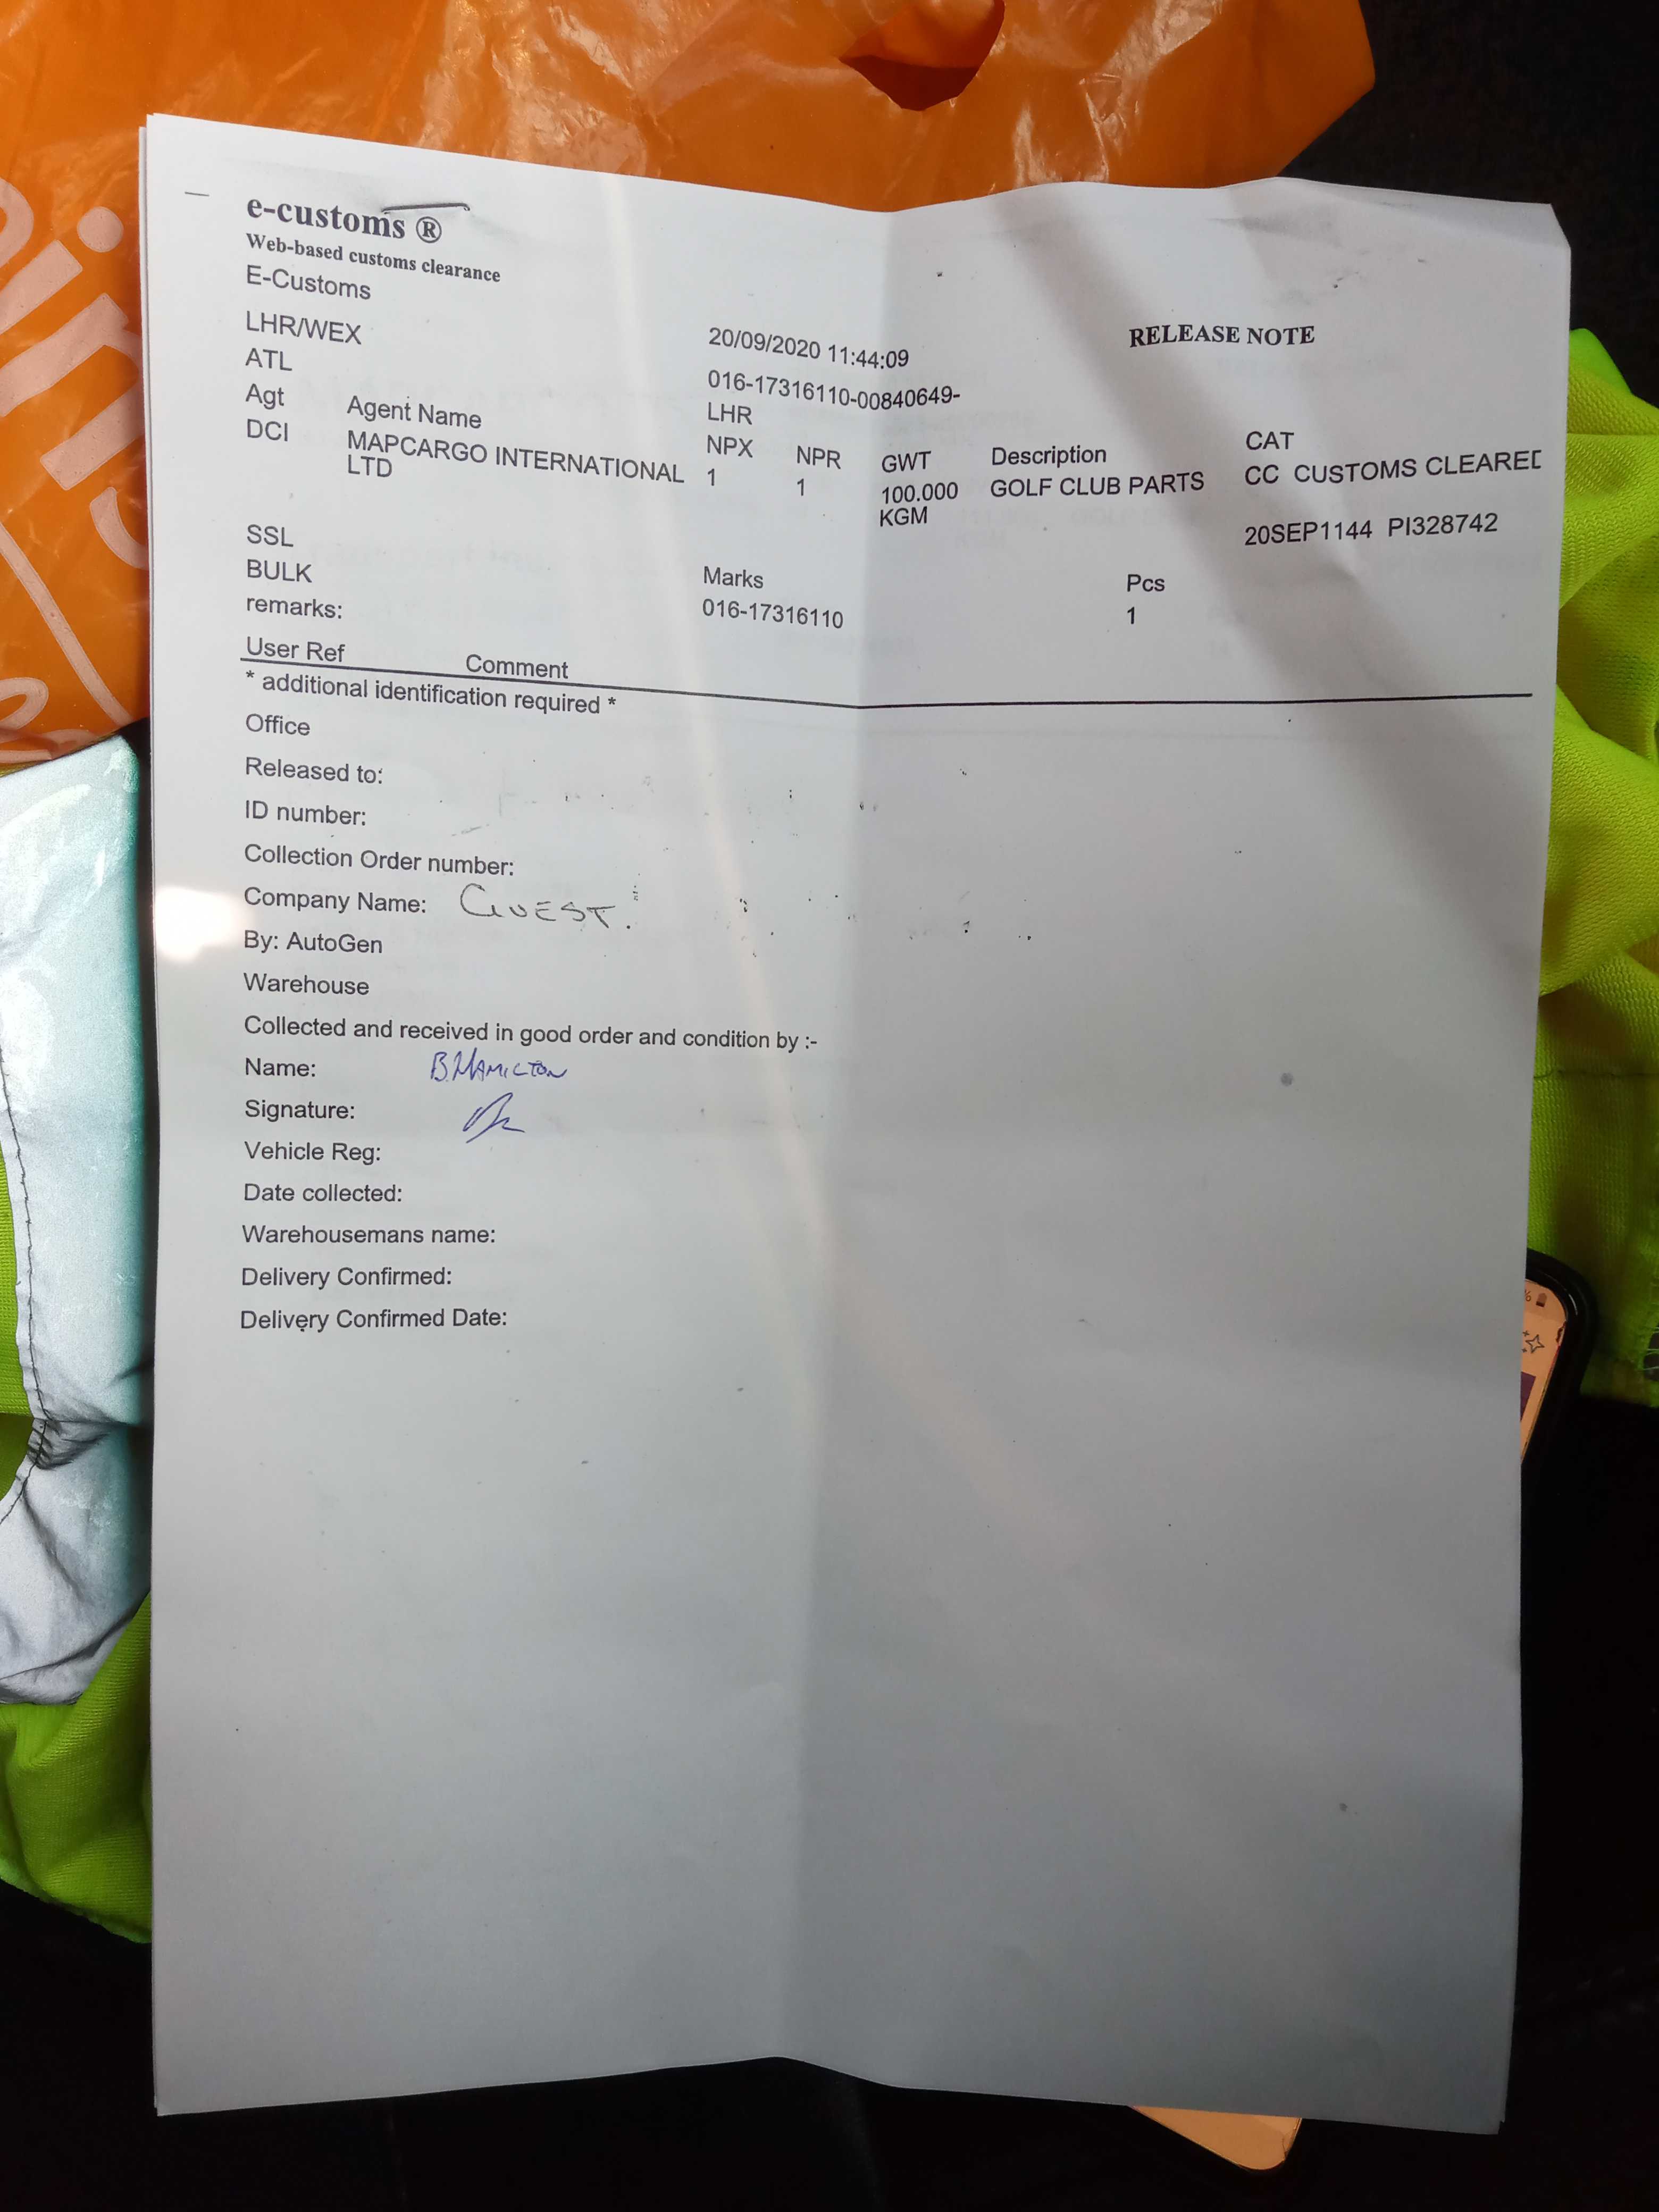 e-customs ®
Web-based customs clearance
E-Customs
LHR/WEX 20/09/2020 11:44:09 RELEASE NOTE
ATL 016-17316110-00840649-
Agt Agent Name LHR
DCI MAPCARGO INTERNATIONAL LTD NPX NPR GWT Description CAT
1 1 100.000 KGM GOLF CLUB PARTS CC CUSTOMS CLEARED
20SEP1144 PI328742
SSL
BULK Marks Pcs
remarks: 016-17316110 1
User Ref Comment
* additional identification required *
Office
Released to:
ID number:
Collection Order number:
Company Name: GUEST.
By: AutoGen
Warehouse
Collected and received in good order and condition by :-
Name: B.HAMILTON
Signature:
Vehicle Reg:
Date collected:
Warehousemans name:
Delivery Confirmed:
Delivery Confirmed Date: